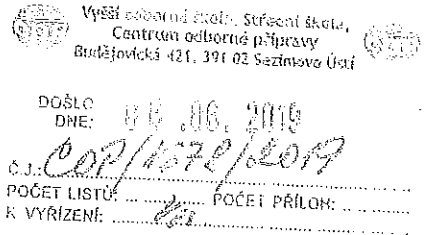 Vyšší odborná škola, Střední škola,
Centrum odborné přípravy
Budějovická 421, 391 02 Sezimovo Ústí
DOŠLO
DNE: 06.06.2019
Č.J.: COP/1678/2019
POČET LISTŮ: POČET PŘÍLOH:
K VYŘÍZENÍ: